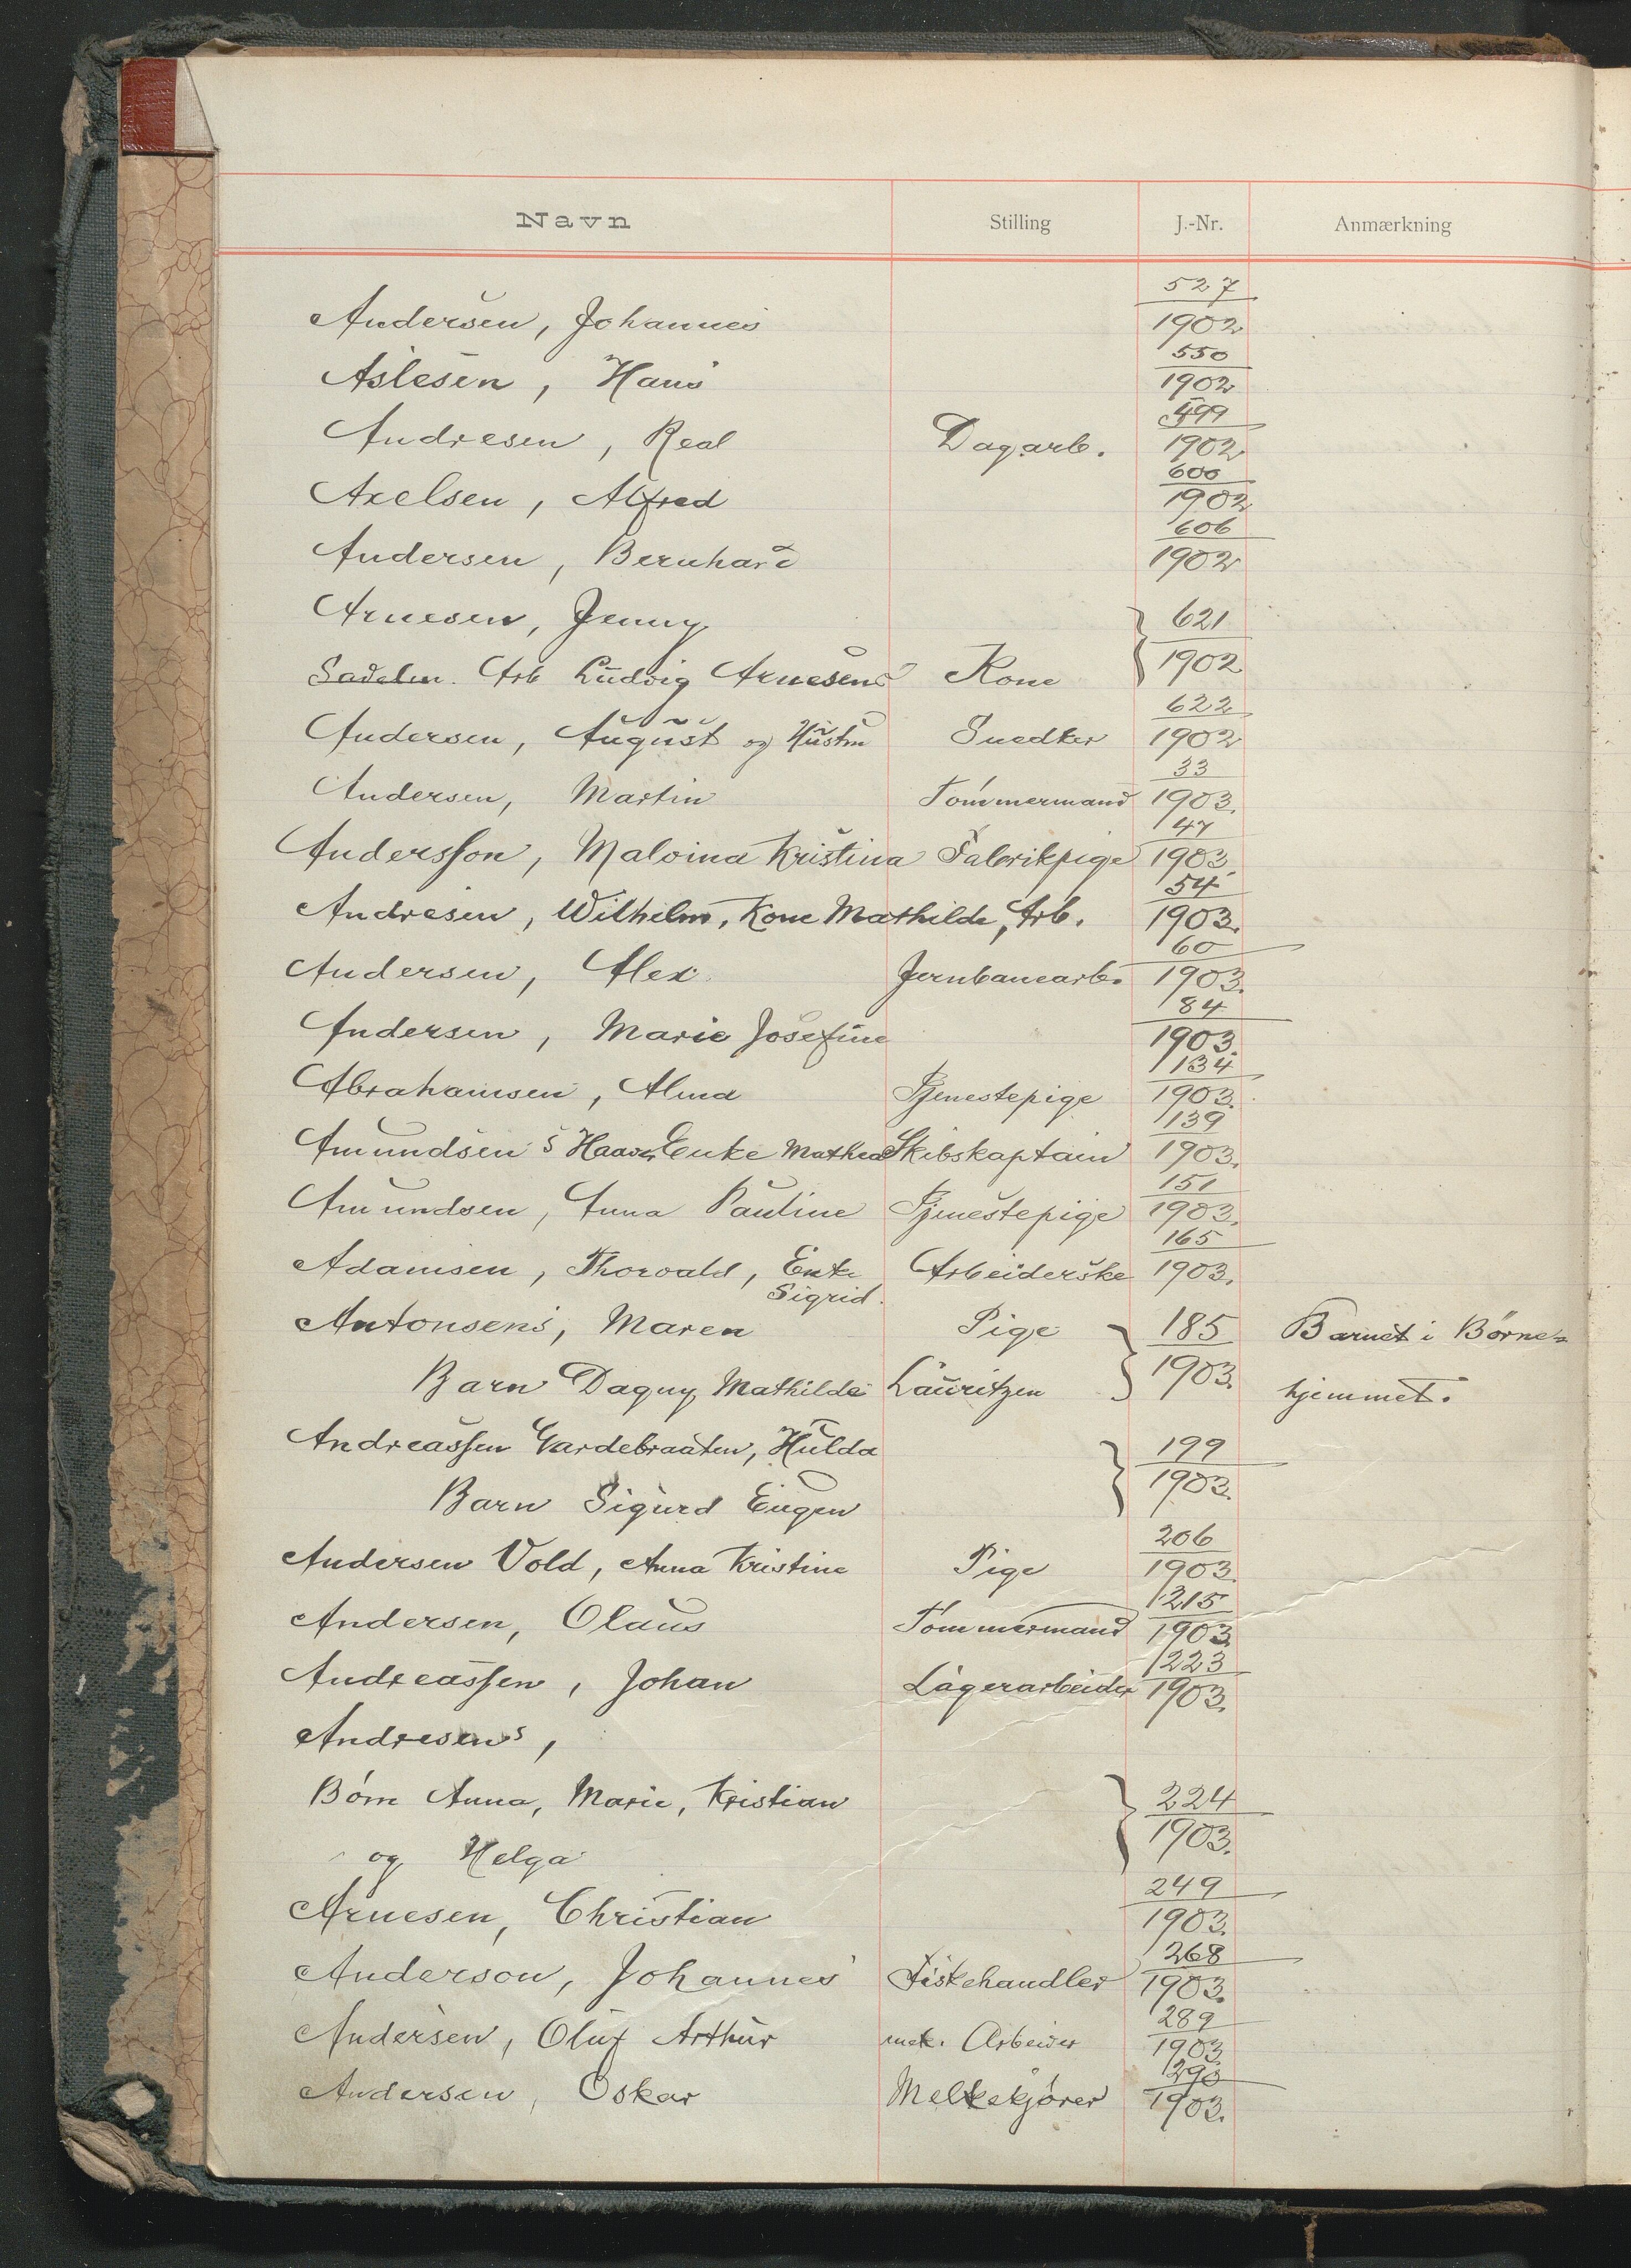 Navn Stilling J.-Nr. Anmærkning
Andersen, Johannes 527/1902
Aslesen, Hans 550/1902
Andresen, Real Dagarb. 599/1902
Axelsen, Alfred 600/1902
Andersen, Bernhard 606/1902
Arnesen, Jenny } 621
Sadelm. Arb Ludvig Arnesens Kone } 1902
Andersen, August og Hustru Snedker 622/1902
Andersen, Martin Tømmermand 33/1903.
Andersson, Malvina Kristina Fabrikpige 47/1903.
Andresen, Wilhelm, Kone Mathilde, Arb. 54/1903.
Andersen, Alex. Jernbanearb. 60/1903.
Andersen, Marie Josefine 84/1903.
Abrahamsen, Alma Tjenestepige 134/1903.
Amundsen's Enke Mathea Skibskaptain 139/1903.
Amundsen, Anna Pauline Tjenestepige 151/1903.
Adamsen, Thorvald, Enke Arbeiderske 165/1903.
Sigrid.
Antonsens, Maren Pige } 185 Barnet i Børne-
Barn Dagny Mathilde Lauritzen } 1903. hjemmet.
Andreassen Gardebraaten, Hulda } 199
Barn Sigurd Eugen } 1903.
Andersen Vold, Anna Kristine Pige 206/1903.
Andersen, Olaus Tømmermand 215/1903
Andreassen, Johan Lagerarbeider 223/1903.
Andresens,
Børn Anna, Marie, Kristian } 224
og Helga } 1903.
Arnesen, Christian 249/1903.
Anderson, Johannes Fiskehandler 268/1903.
Andersen, Oluf Arthur mek. Arbeider 289/1903
Andersen, Oskar Melkekjører 290/1903.